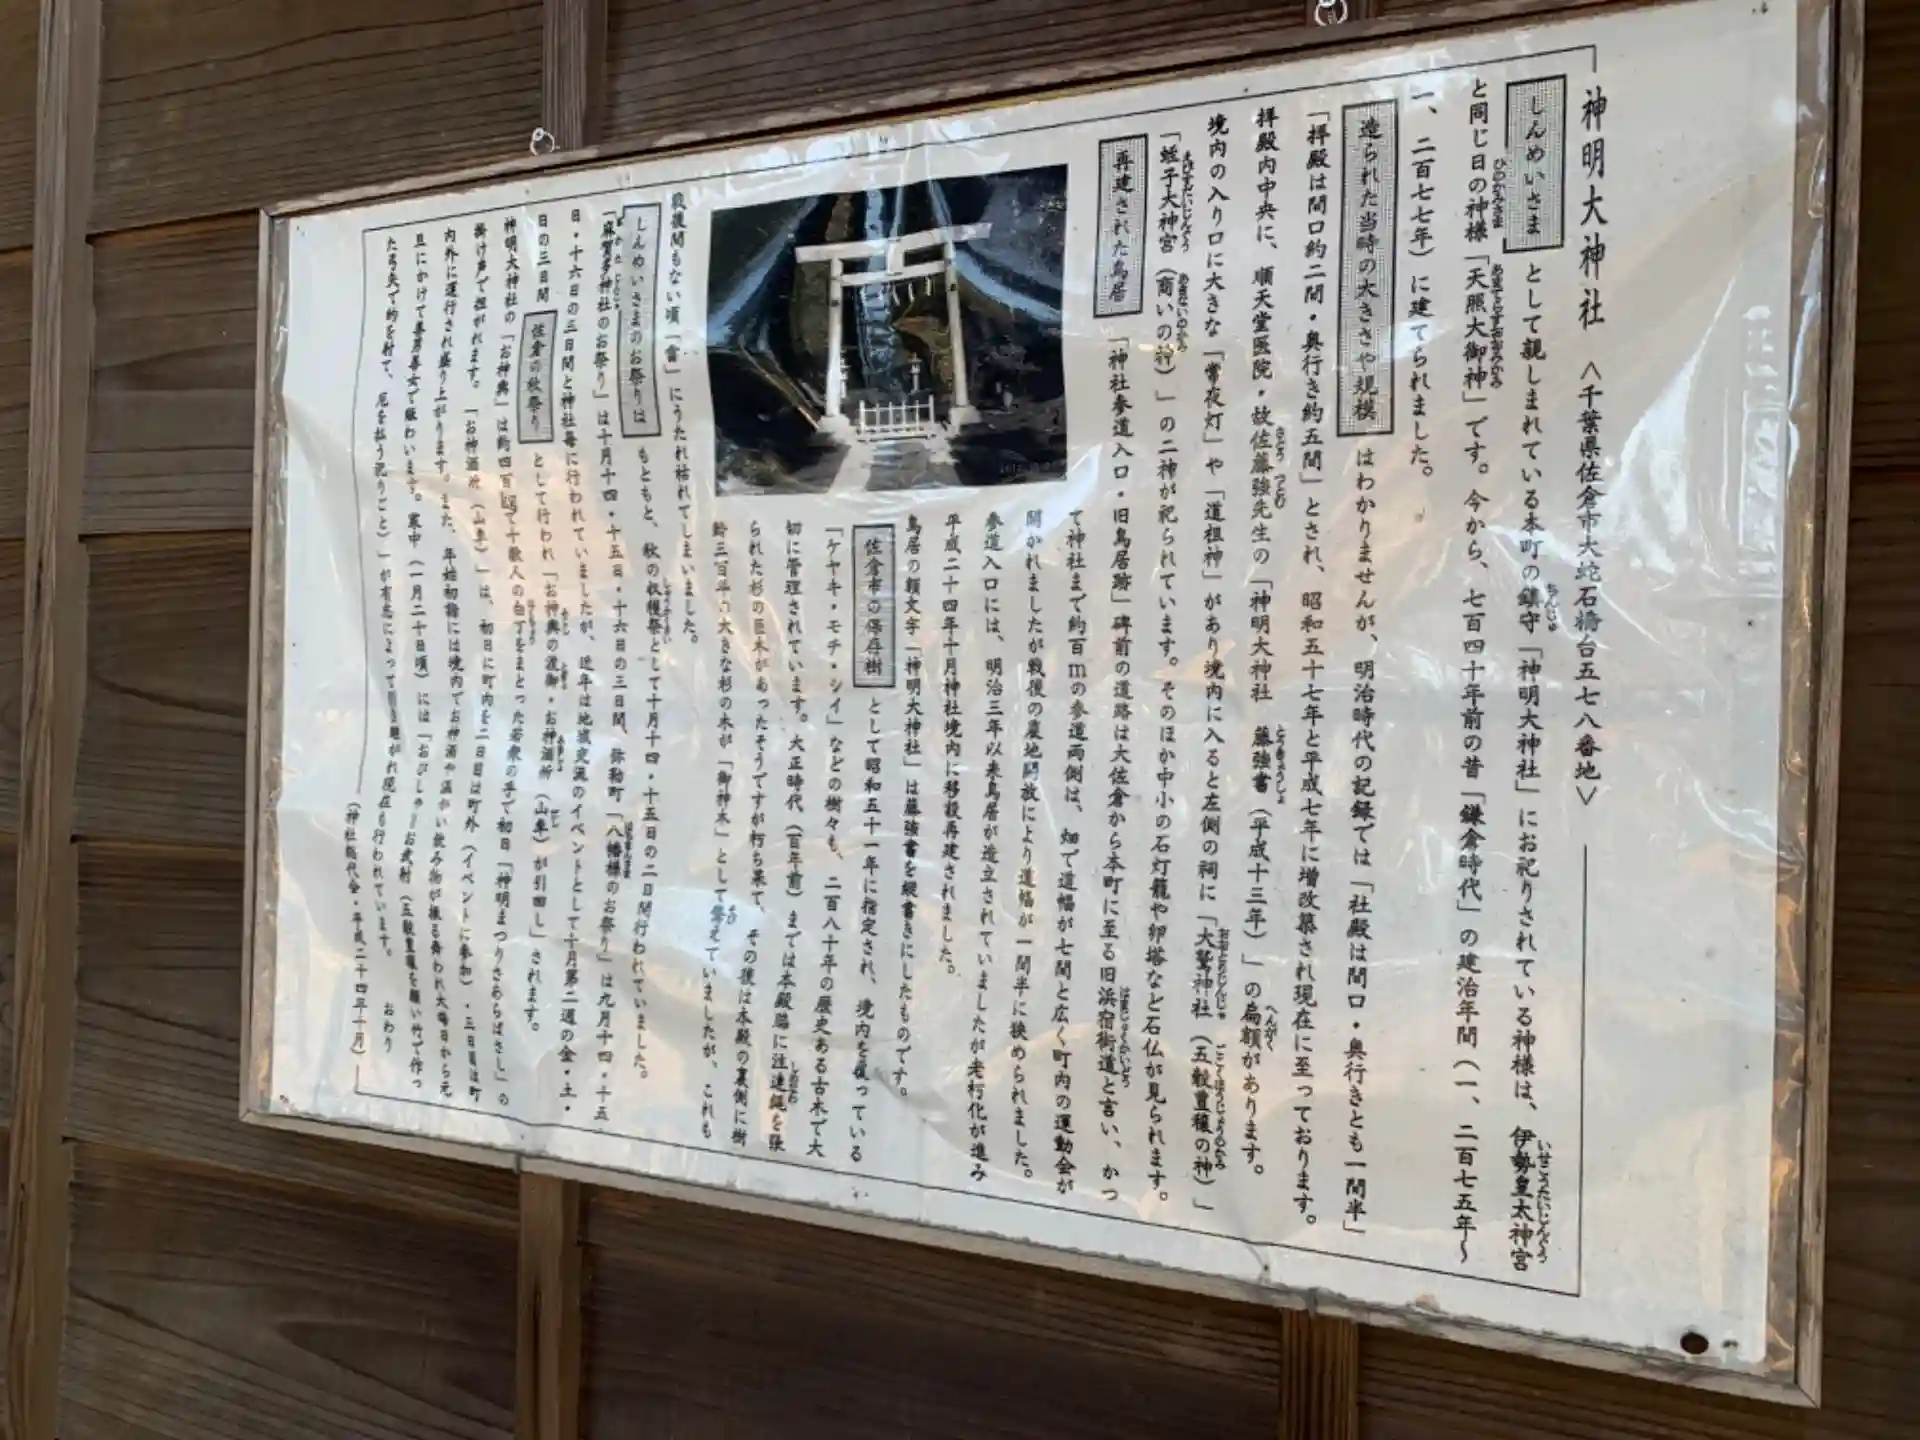 神明大神社 〈千葉県佐倉市大蛇石橋台五七八番地〉
しんめいさま として親しまれている本町の鎮守「神明大神社」にお祀りされている神様は、伊勢皇太神宮
と同じ日の神様「天照大御神」です。今から、七百四十年前の昔「鎌倉時代」の建治年間(一、二百七五年~
一、二百七七年)に建てられました。
造られた当時の大きさや規模 はわかりませんが、明治時代の記録では「社殿は間口・奥行きとも一間半」
「拝殿は間口約二間・奥行き約五間」とされ、昭和五十七年と平成七年に増改築され現在に至っております。
拝殿内中央に、順天堂医院・故佐藤強先生の「神明大神社 藤強書(平成十三年)」の扁額があります。
境内の入り口に大きな「常夜灯」や「道祖神」があり境内に入ると左側の祠に「大鷲神社(五穀豊穣の神)」
「蛭子大神宮(商いの神)」の二神が祀られています。そのほか中小の石灯籠や卵塔など石仏が見られます。
再建された鳥居 「神社参道入口・旧鳥居跡」碑前の道路は大佐倉から本町に至る旧浜宿街道と言い、かつ
て神社まで約百mの参道両側は、畑で道幅が七間と広く町内の運動会が
開かれましたが戦後の農地開放により道幅が一間半に狭められました。
参道入口には、明治三年以来鳥居が造立されていましたが老朽化が進み
平成二十四年十月神社境内に移設再建されました。
鳥居の額文字「神明大神社」は藤強書を縦書きにしたものです。
佐倉市の保存樹 として昭和五十一年に指定され、境内を覆っている
「ケヤキ・モチ・シイ」などの樹々も、二百八十年の歴史ある古木で大
切に管理されています。大正時代(百年前)までは本殿脇に注連縄を張
られた杉の巨木があったそうですが朽ち果て、その後は本殿の裏側に樹
齢三百年の大きな杉の木が「御神木」として聳えていましたが、これも
戦後間もない頃「雷」にうたれ枯れてしまいました。
しんめいさまのお祭りは もともと、秋の収穫祭として十月十四・十五日の二日間行われていました。
「麻賀多神社のお祭り」は十月十四・十五日・十六日の三日間、弥勒町「八幡様のお祭り」は九月十四・十五
日・十六日の三日間と神社毎に行われていましたが、近年は地域交流のイベントとして十月第二週の金・土・
日の三日間 佐倉の秋祭り として行われ「お神輿の渡御・お神酒所(山車)が引回し」されます。
神明大神社の「お神輿」は約四百㎏で十数人の白丁をまとった若衆の手で初日「神明まつりさあらばさし」の
掛け声で担がれます。「お神酒所(山車)」は、初日に町内を二日目は町外(イベントに参加)・三日目は町
内外に運行され盛り上がります。また、年始初詣には境内でお神酒や温かい飲み物が振る舞われ大晦日から元
旦にかけて善男善女で賑わいます。寒中(一月二十日頃)には「おびしゃーお武射(五穀豊穣を願い竹で作っ
た弓矢で的を射て、厄を払う祀りごと)」が有志によって引き継がれ現在も行われています。 おわり
(神社総代会・平成二十四年十月)